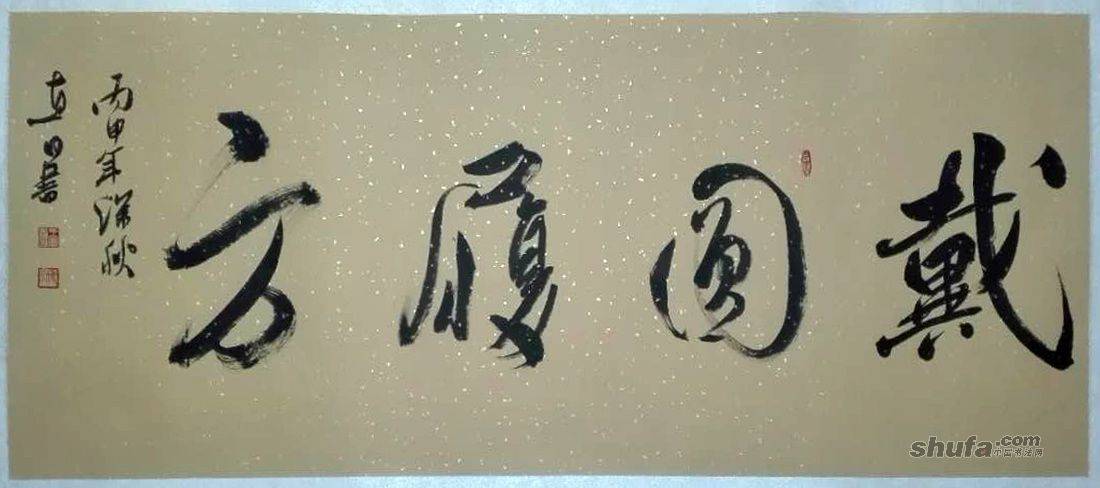 戴圓履方
丙申年深秋
書
shufa.com
中国书法网